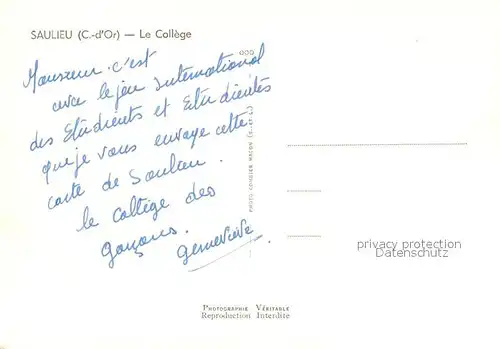 SAULIEU (C.-d'Or) — Le Collège
Monsieur. c'est
avec le jeu International
des Etudients et Etudientes
que je vous envoye cette
carte de Saulieu.
le collège des
garçons.
genevieve
PHOTOS COMBIER MACON (S.-ET-L.)
privacy protection
Datenschutz
PHOTOGRAPHIE VÉRITABLE
Reproduction Interdite